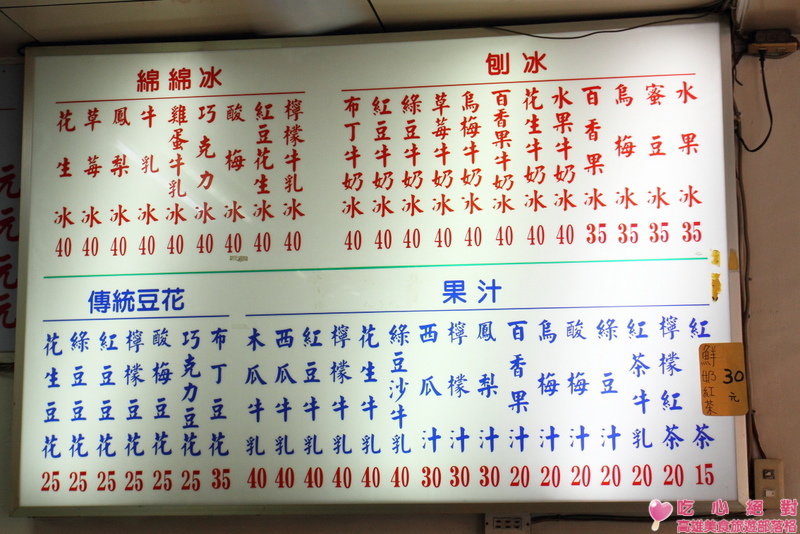 綿綿冰
花生冰 40
草莓冰 40
鳳梨冰 40
牛乳冰 40
雞蛋牛乳冰 40
巧克力冰 40
酸梅冰 40
紅豆花生冰 40
檸檬牛乳冰 40
刨冰
布丁牛奶冰 40
紅豆牛奶冰 40
綠豆牛奶冰 40
草莓牛奶冰 40
烏梅牛奶冰 40
百香果牛奶冰 40
花生牛奶冰 40
水果牛奶冰 40
百香果冰 35
烏梅冰 35
蜜豆冰 35
水果冰 35
傳統豆花
花生豆花 25
綠豆豆花 25
紅豆豆花 25
檸檬豆花 25
酸梅豆花 25
巧克力豆花 25
布丁豆花 35
果汁
木瓜牛乳 40
西瓜牛乳 40
紅豆牛乳 40
檸檬牛乳 40
花生牛乳 40
綠豆沙牛乳 40
西瓜汁 30
檸檬汁 30
鳳梨汁 30
百香果汁 20
烏梅汁 20
酸梅汁 20
綠豆汁 20
紅茶牛乳 20
檸檬紅茶 20
紅茶 15
鮮奶紅茶 30元
元
元
元
元
吃心絕對
高雄美食旅遊部落格